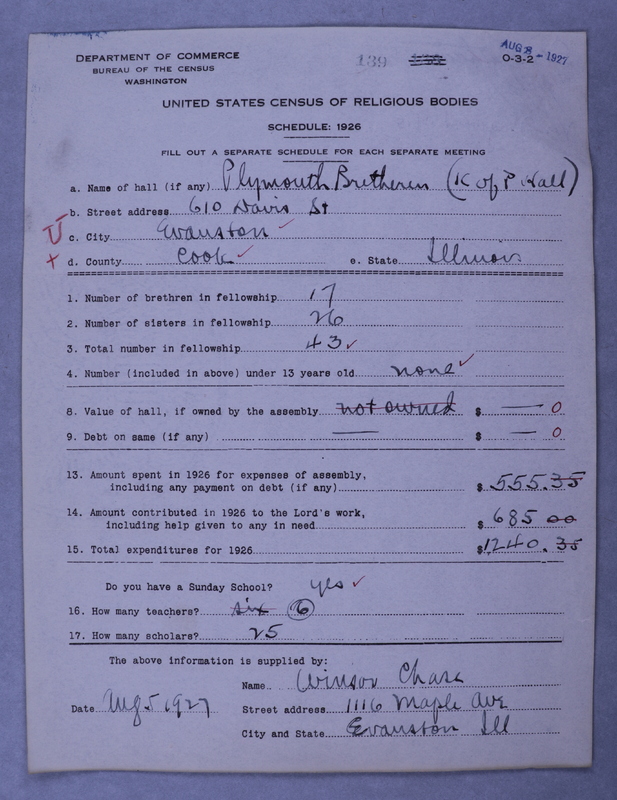 DEPARTMENT OF COMMERCE
BUREAU OF THE CENSUS
WASHINGTON
139
AUG 8 - 1927
O-3-2
UNITED STATES CENSUS OF RELIGIOUS BODIES
SCHEDULE: 1926
FILL OUT A SEPARATE SCHEDULE FOR EACH SEPARATE MEETING
a. Name of hall (if any) Plymouth Bretheren (K of P Hall)
b. Street address 610 Davis St
c. City Evanston
d. County Cook e. State Illinois
1. Number of brethren in fellowship 17
2. Number of sisters in fellowship 26
3. Total number in fellowship 43
4. Number (included in above) under 13 years old none
8. Value of hall, if owned by the assembly not owned $ — 0
9. Debt on same (if any) — $ — 0
13. Amount spent in 1926 for expenses of assembly,
including any payment on debt (if any) $ 555.35
14. Amount contributed in 1926 to the Lord's work,
including help given to any in need $ 685 00
15. Total expenditures for 1926 $1240.35
Do you have a Sunday School? yes
16. How many teachers? six 6
17. How many scholars? 25
The above information is supplied by:
Name Winsor Chase
Date Aug 5 1927 Street address 1116 Maple Ave
City and State Evanston Ill